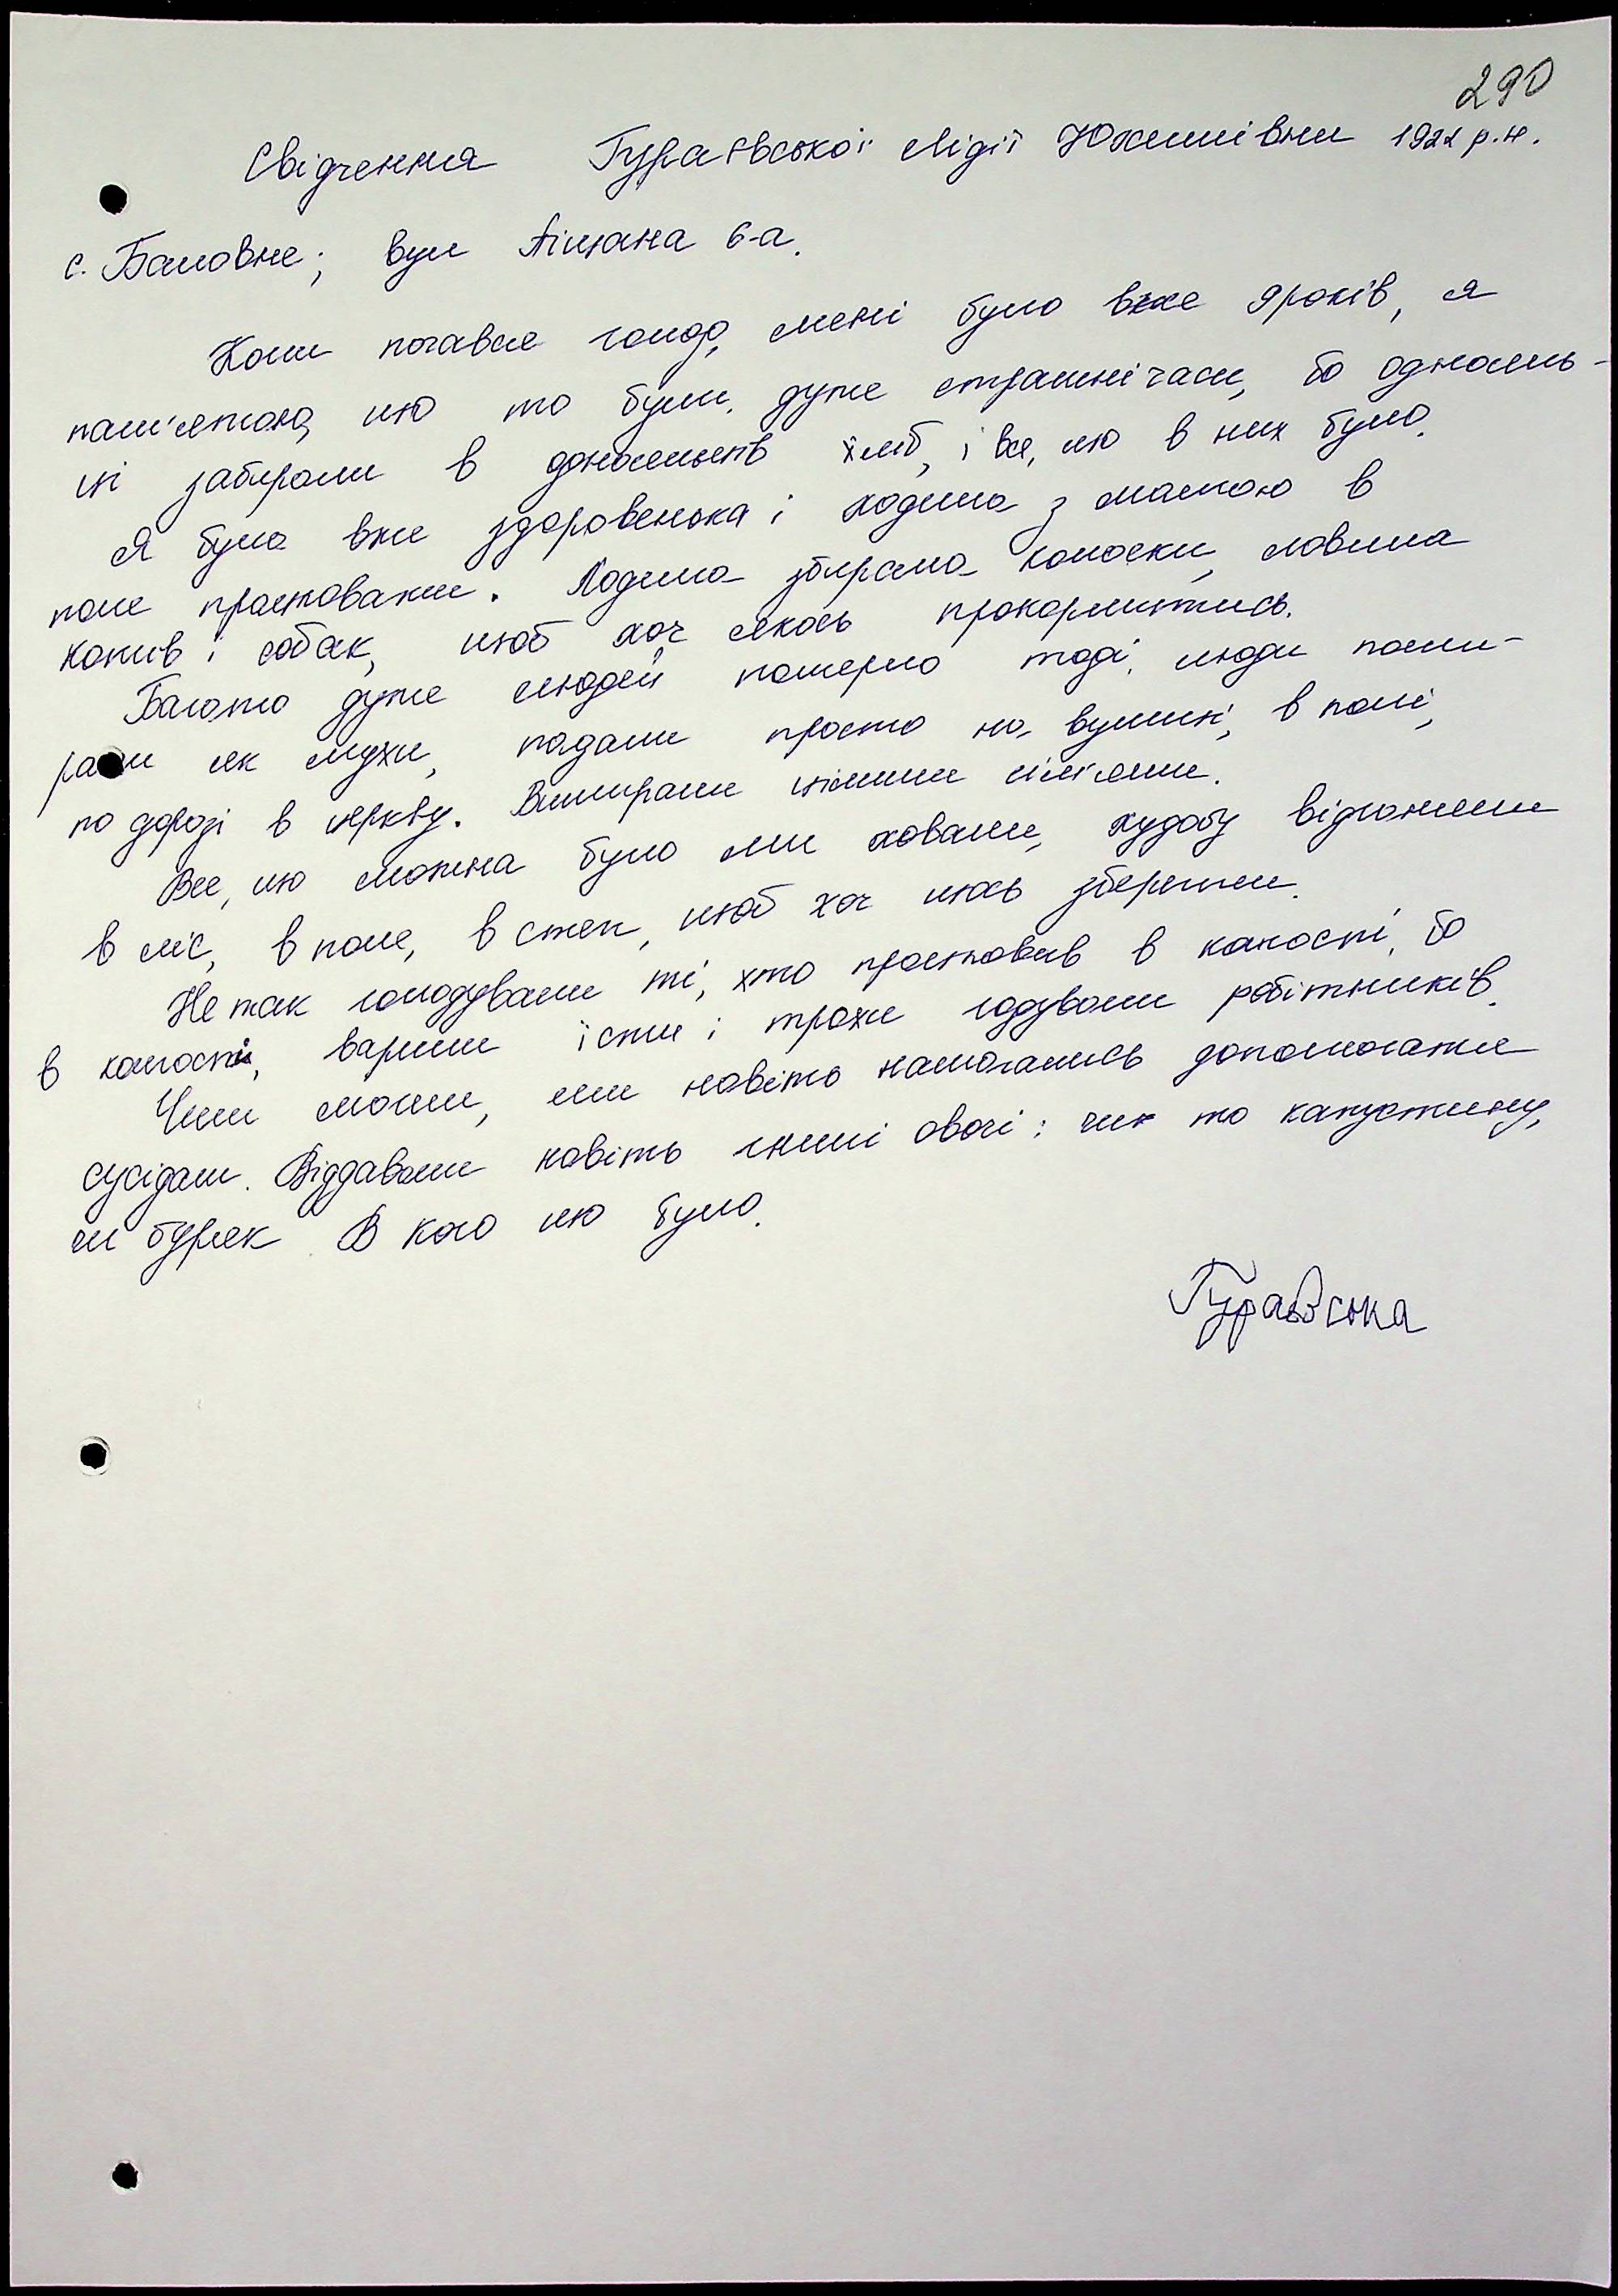 290
Свідчення Гураєвської Лідії Юхимівни 1922 р.н.
с. Баловне; вул Ліщана 6-а.
Коли почався голод, мені було вже 9 років, я
пам'ятаю, що то були дуже страшні часи, бо одноосіб-
ці забирали в хліб, і все, що в них було.
Я була вже здоровенька і ходила з мамою в
поле працювати. Ходила збирала колоски, ловила
котів і собак, щоб хоч якось прокормитись.
Багато дуже людей померло тоді, люди поми-
рали як мухи, падали просто на вулиці, в полі,
по дорозі в церкву. Вимирали цілими сім'ями.
Все, що можна було ми ховали, худобу відгонили
в ліс, в поле, в степ, щоб хоч щось зберегти.
Не так голодували ті, хто працював в колгоспі, бо
в колгоспі, варили їсти і трохи годували робітників.
Чим могли, ми навіть намагались допомагати
сусідам. Віддавали навіть гнилі овочі: чи то капустину,
чи буряк. В кого що було.
Гураєвська